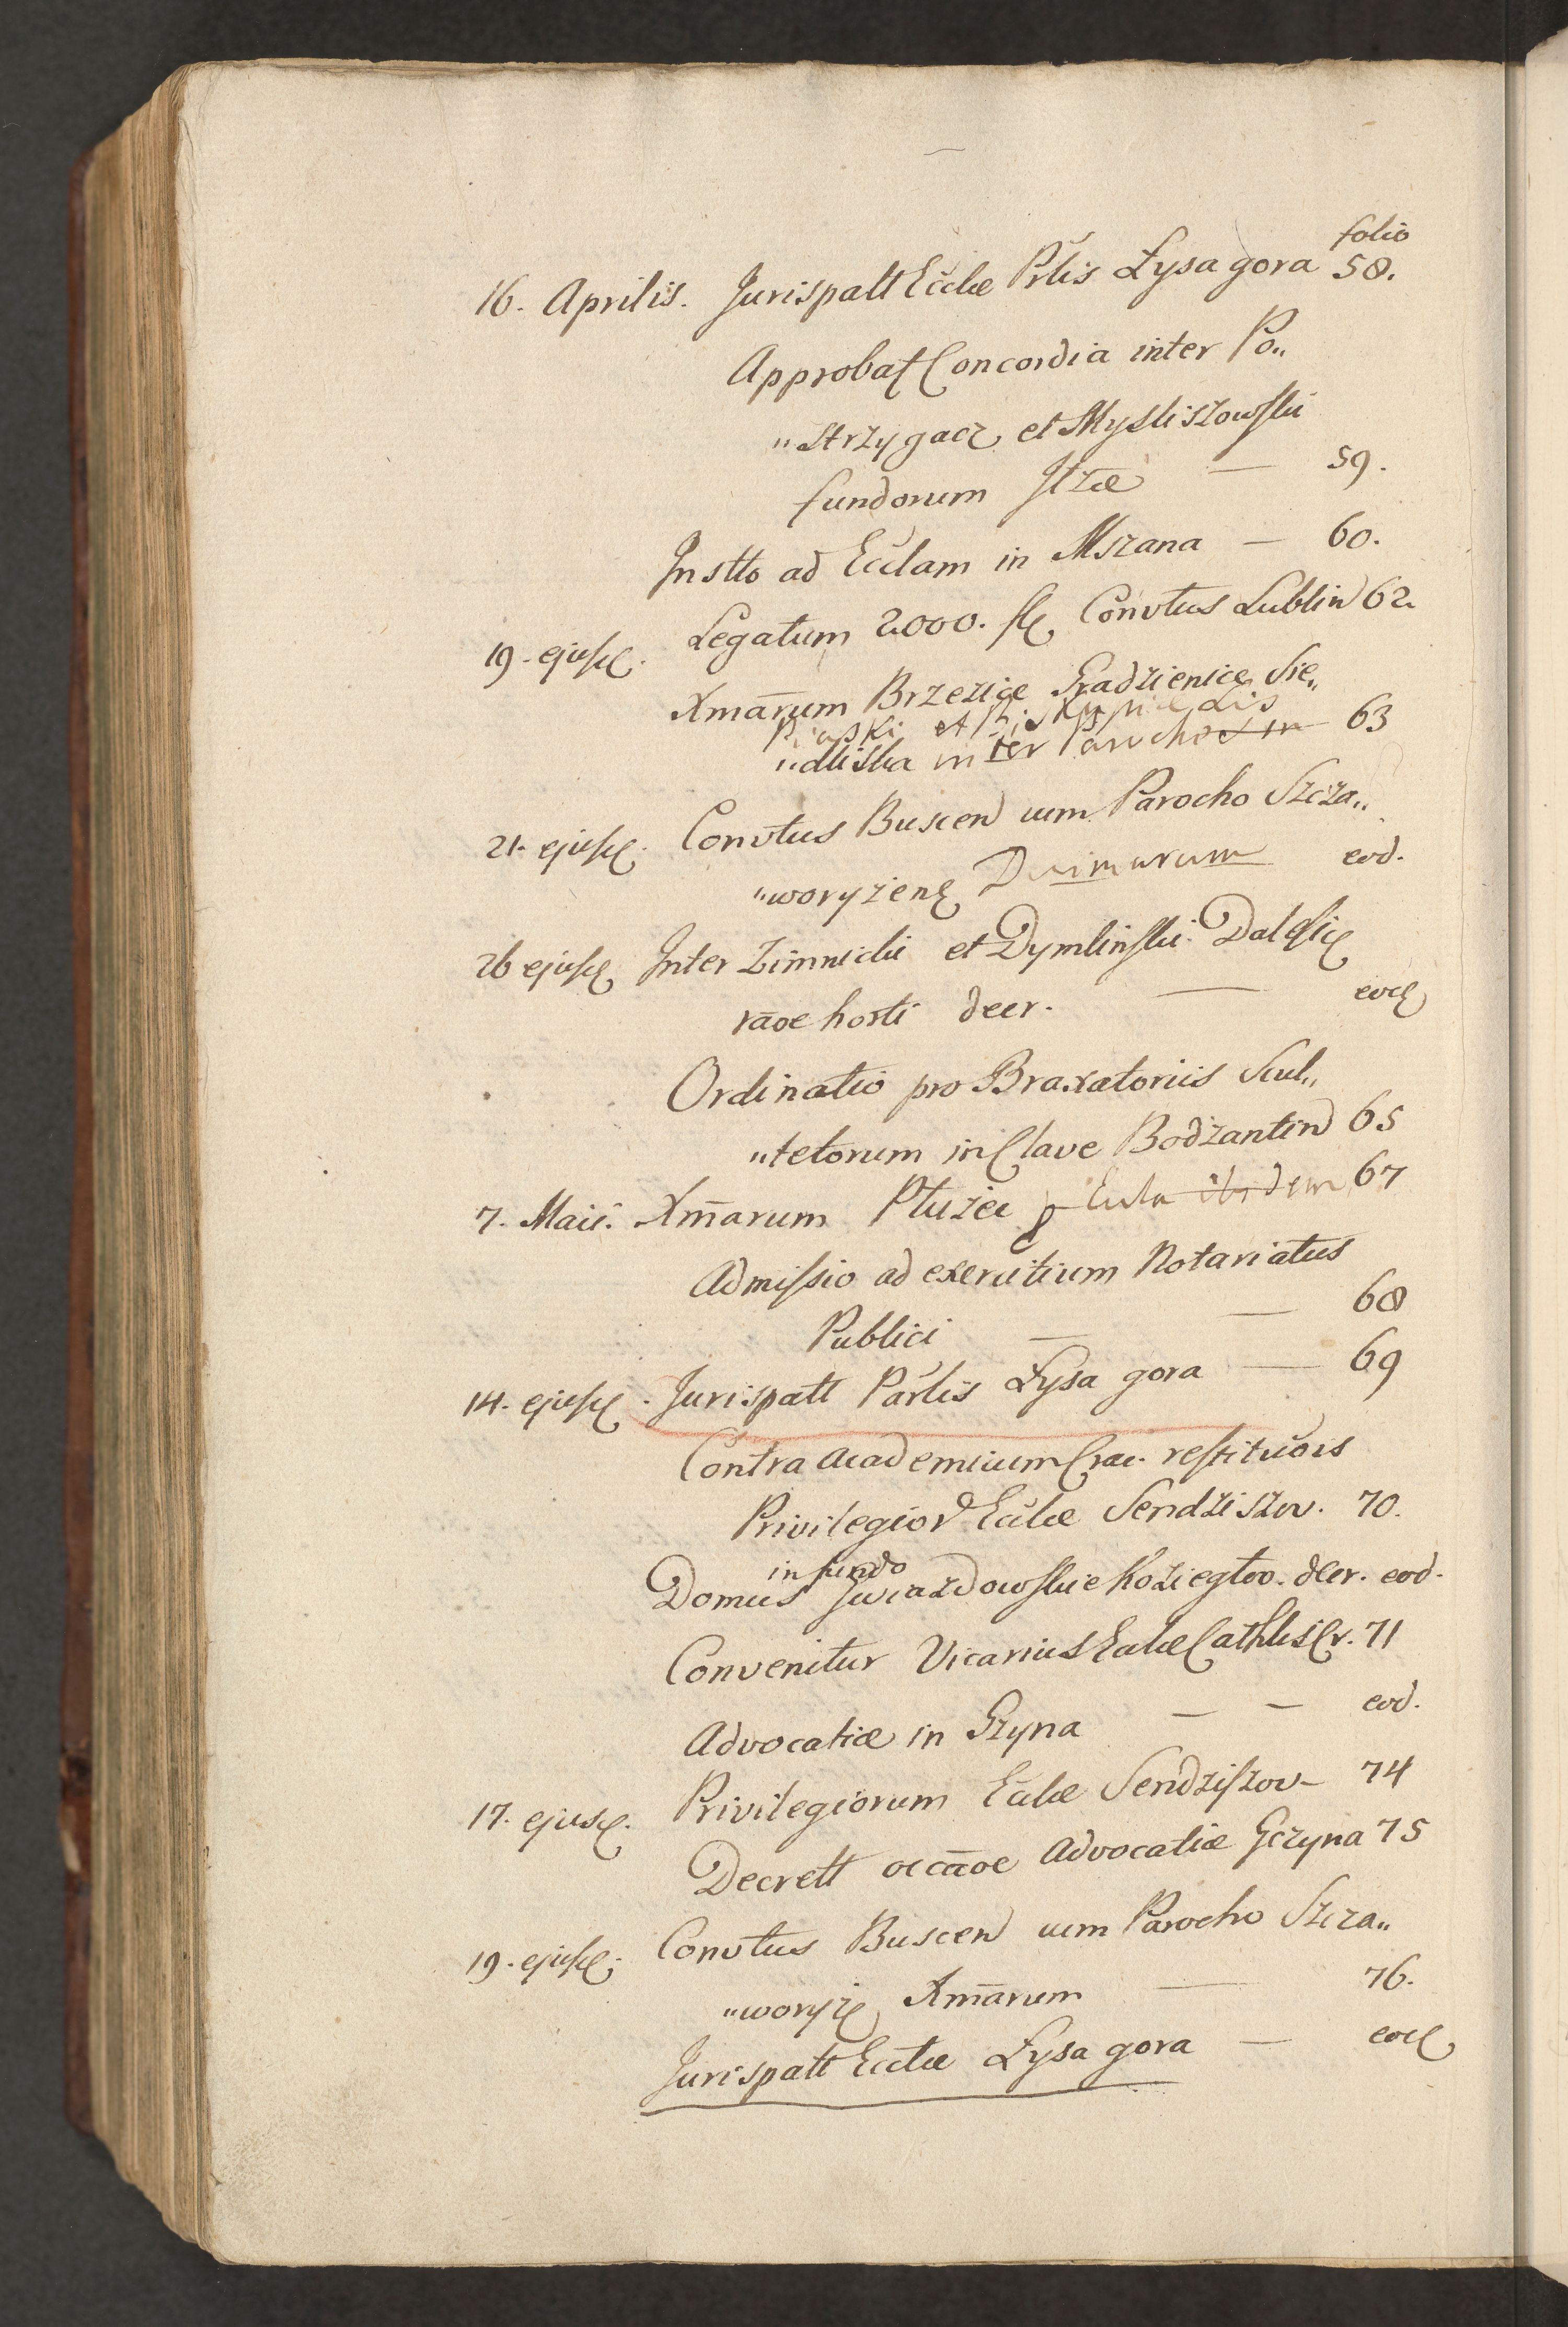 folio
16. Aprilis. Jurispatt Eccłae Prlis Łysa gora 58.
Approbat Concordia inter Po„
„strzygacz et Mysliszowski
fundorum Jłzae — 59.
Instto ad Ecclam in Mszana — 60.
19. ejusd. Legatum 2000. fl. Convtus Lublin 62.
Xmārum Brzezice Gradzienice Sie„
Piaski et Biskupice Lis
„dliska inter Parochos in 63
21. ejusd. Convtus Buscen cum Parocho Szcza„
„woryzien Decimarum eod.
26 ejusd. Inter Zimnicki et Dymlinski Dalesic
rāoe horti decr. — eod
Ordinatio pro Braxatoriis Scul„
„tetorum in Clave Bodzantin 65
7. Maii. Xm̄arum Płuzec Eccla ibidem 67
Admissio ad exercitium Notariatus
Publici — — 68
14. ejusd. Jurispatt Parlis Łysa gora — 69
Contra Academicum Crac. restituōis
Privilegior Ecclae Sendziszov. 70.
in fundo
Domus Gwiazdowskie Koziegłov. decr. eod.
Convenitur Vicarius Eclae Cathlis Cr. 71
Advocatiae in Gzyna — — eod.
17. ejusd. Privilegiorum Ecclae Sendziszov – 74
Decrett occāoe Advocatiae Gczyna 75
19. ejusd. Convtus Buscen cum Parocho Szcza„
„woryz Xm̄arum — 76.
Jurispatt Ecclae Łysa gora — eod